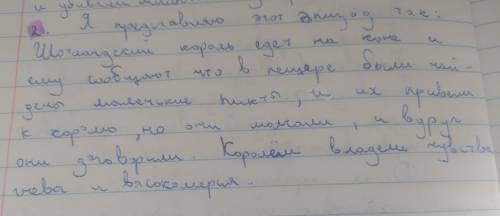 и убивали
2. Я представляю этот эпизод так:
Шотландский король едет на коне и
ему сообщают что в пещере были най-
дены маленькие пикты, и их привели
к королю, но они молчали, и вдруг
они заговорили. Королём владели чувства
гнева и высокомерия.